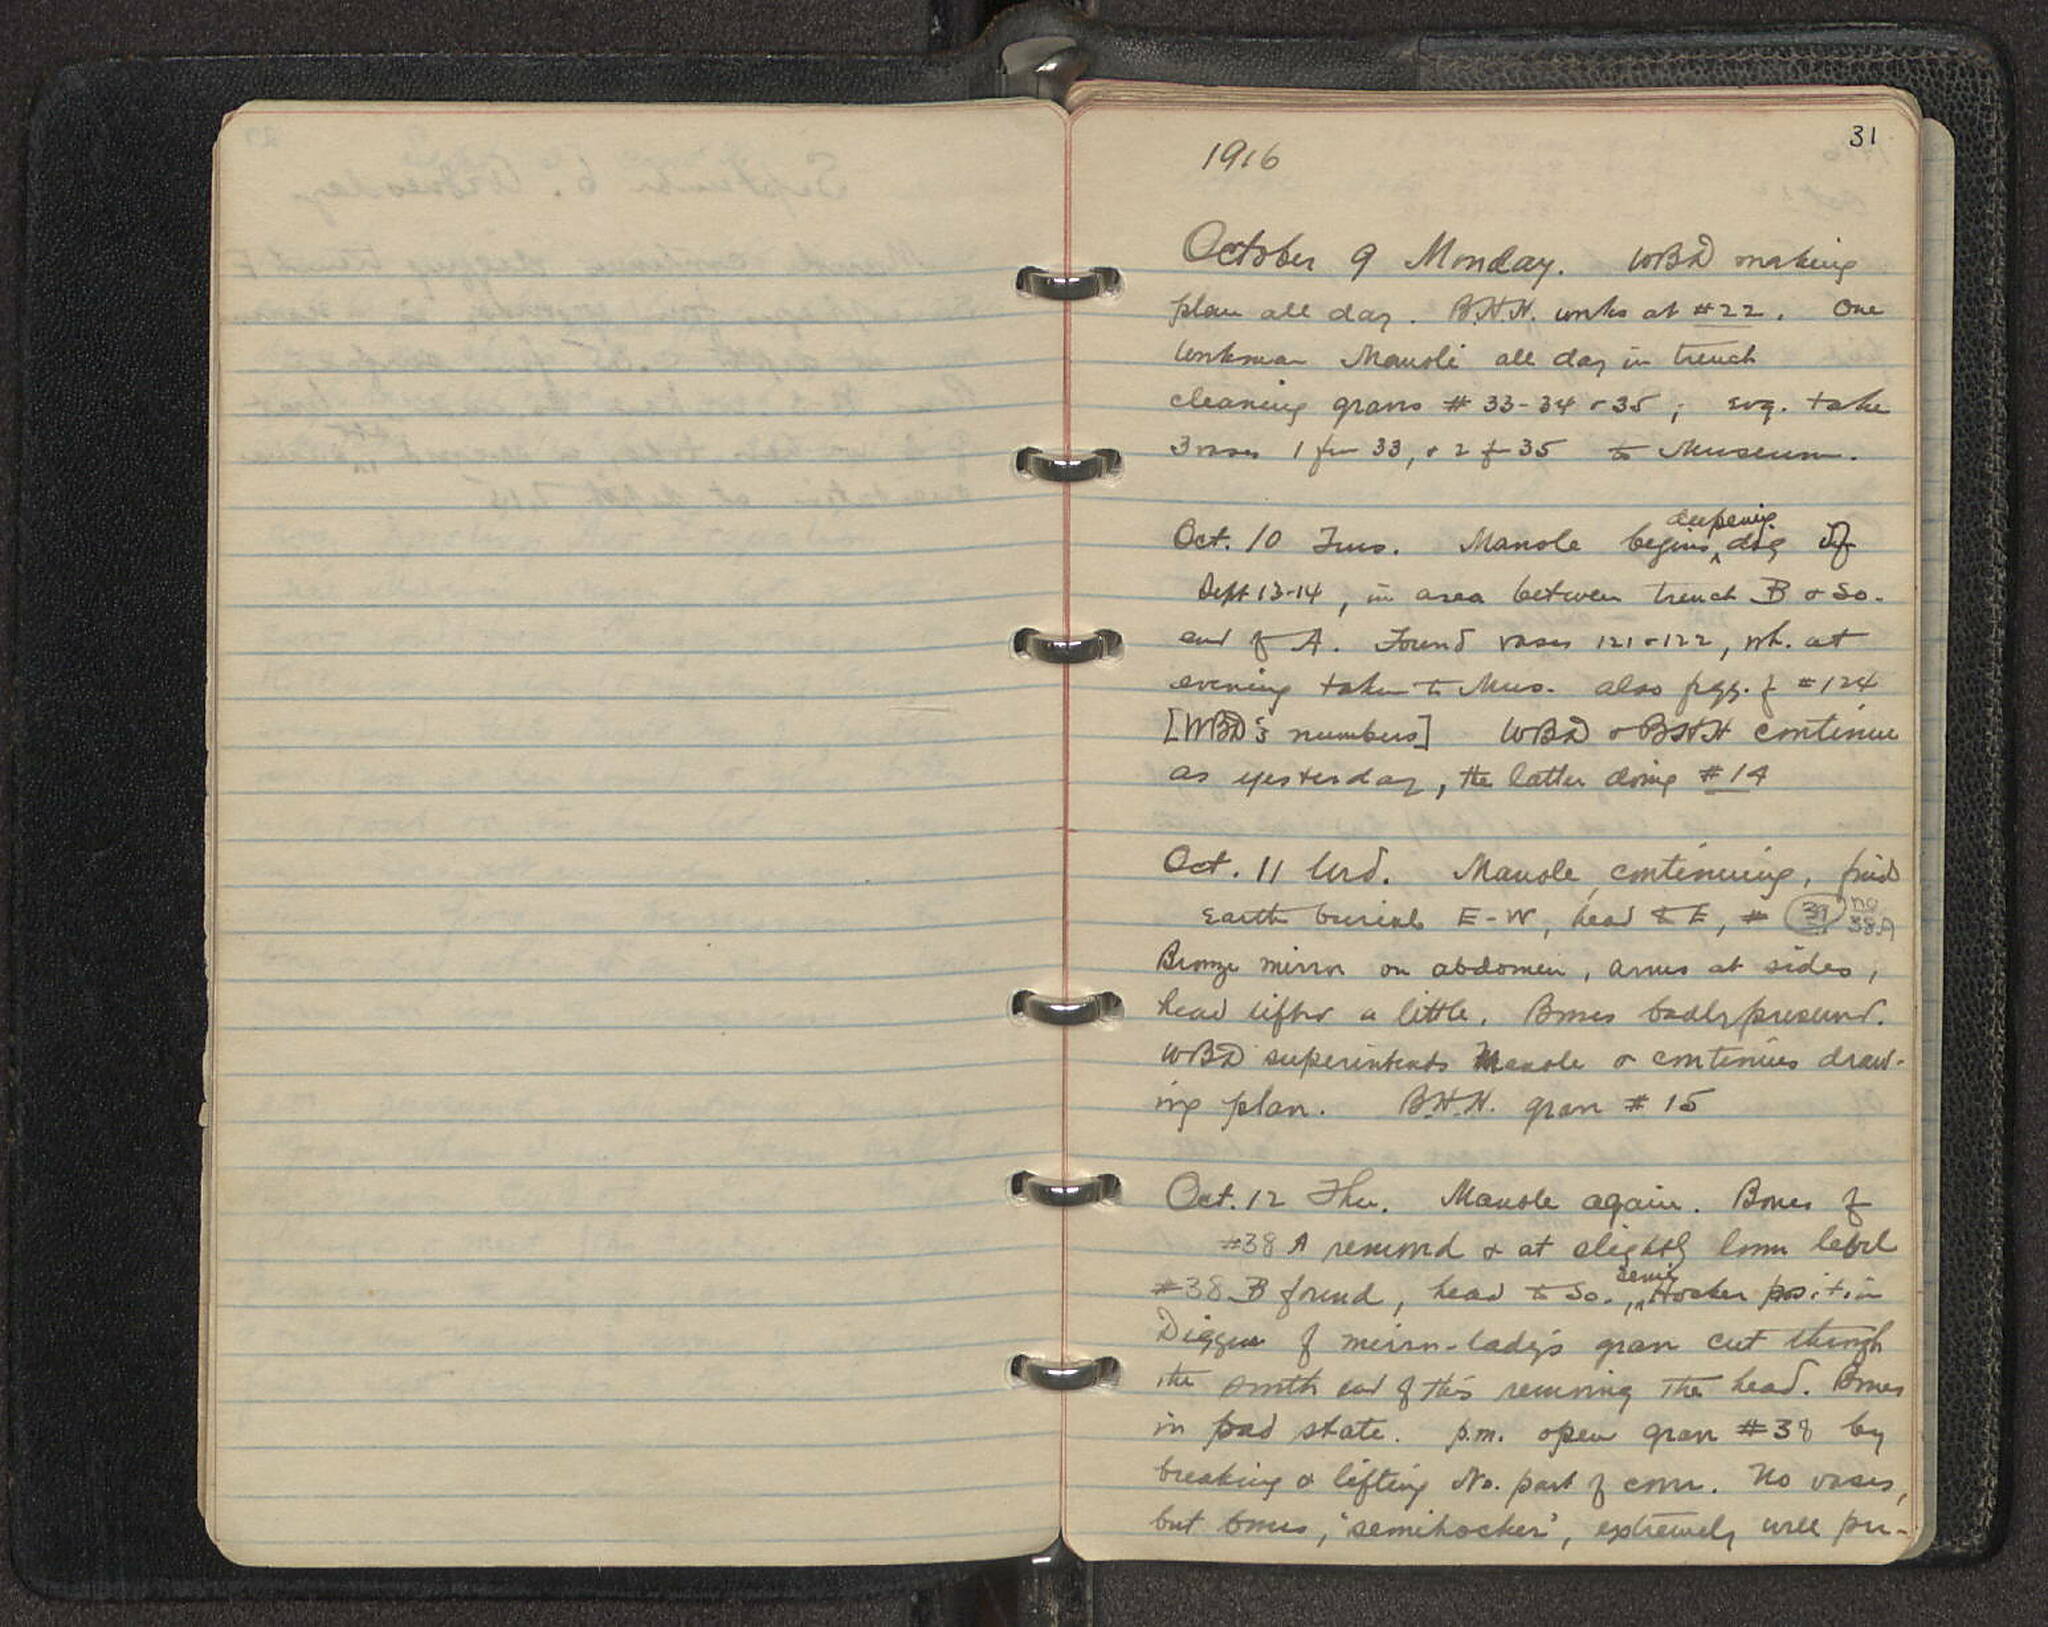 31
1916
October 9 Monday. WBD making
plan all day. B.H.H. works at #22. One
workman Manoli all day in trench
cleaning graves # 33-34 & 35; evg. take
3 vases 1 fm 33, & 2 f 35 to Museum.
Oct. 10 Tues. Manole begins deepening dig of
Sept 13-14, in area between trench B & So.
end of A. Found vases 121 & 122, wh. at
evening taken to Mus. also frgg. of #124
[WBD's numbers] WBD & BHH continue
as yesterday, the latter doing #14
Oct. 11 Wed. Manole continuing, finds
earth burial E-W, head to E, # 39 no 38A
Bronze mirror on abdomen, arms at sides,
head lifted a little. Bones badly preserved.
WBD superintends Manole & continues draw-
ing plan. B.H.H. grave # 15
Oct. 12 Thu. Manole again. Bones of
#38 A removed & at slightly lower level
#38 B found, head to So., semi Hocker position
Diggers of mirror-lady's grave cut through
the south end of this removing the head. Bones
in bad state. p.m. open grave #38 by
breaking & lifting No. part of cover. No vases,
but bones, 'semihocker', extremely well pre-